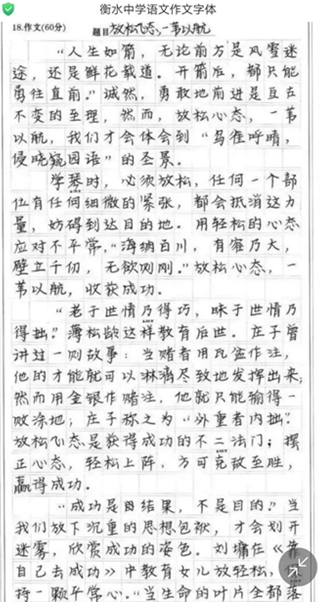 衡水中学语文作文字体
18.作文(60分) 题目 放松心态,一苇以航
“人生如箭,无论前方是风雪迷
途,还是鲜花载道。开箭后,都只能
勇往直前。”诚然,勇敢地前进是亘古
不变的至理,然而,放松心态,一苇
以航,我们才会体会到“鸟雀呼晴,
侵晓窥园语”的圣景。
学琴时,必须放松,任何一个部
位有任何细微的紧张,都会抵消这力
量,妨碍到达目的地。用轻松的心态
应对不平常,“海纳百川,有容乃大,
壁立千仞,无欲则刚。”放松心态,一
苇以航,收获成功。
“老于世情乃得巧,昧于世情乃
得拙。”薄松龄这样教育后世。庄子曾
讲过一则故事:当赌者用瓦盆作注,
他的才能就可以淋漓尽致地发挥出来,
然而用金银作赌注,他就只能输得一
败涂地,庄子称之为“外重者内拙”。
放松心态是获得成功的不二法门;摆
正心态,轻松上阵,方可克敌至胜,
赢得成功。
“成功是结果,不是目的。”当
我们放下沉重的思想包袱,才会划开
迷雾,欣赏成功的姿色。刘墉在《靠
自己去成功》中教育女儿放轻松,
持一颗平常心。“当生命的叶片全部落